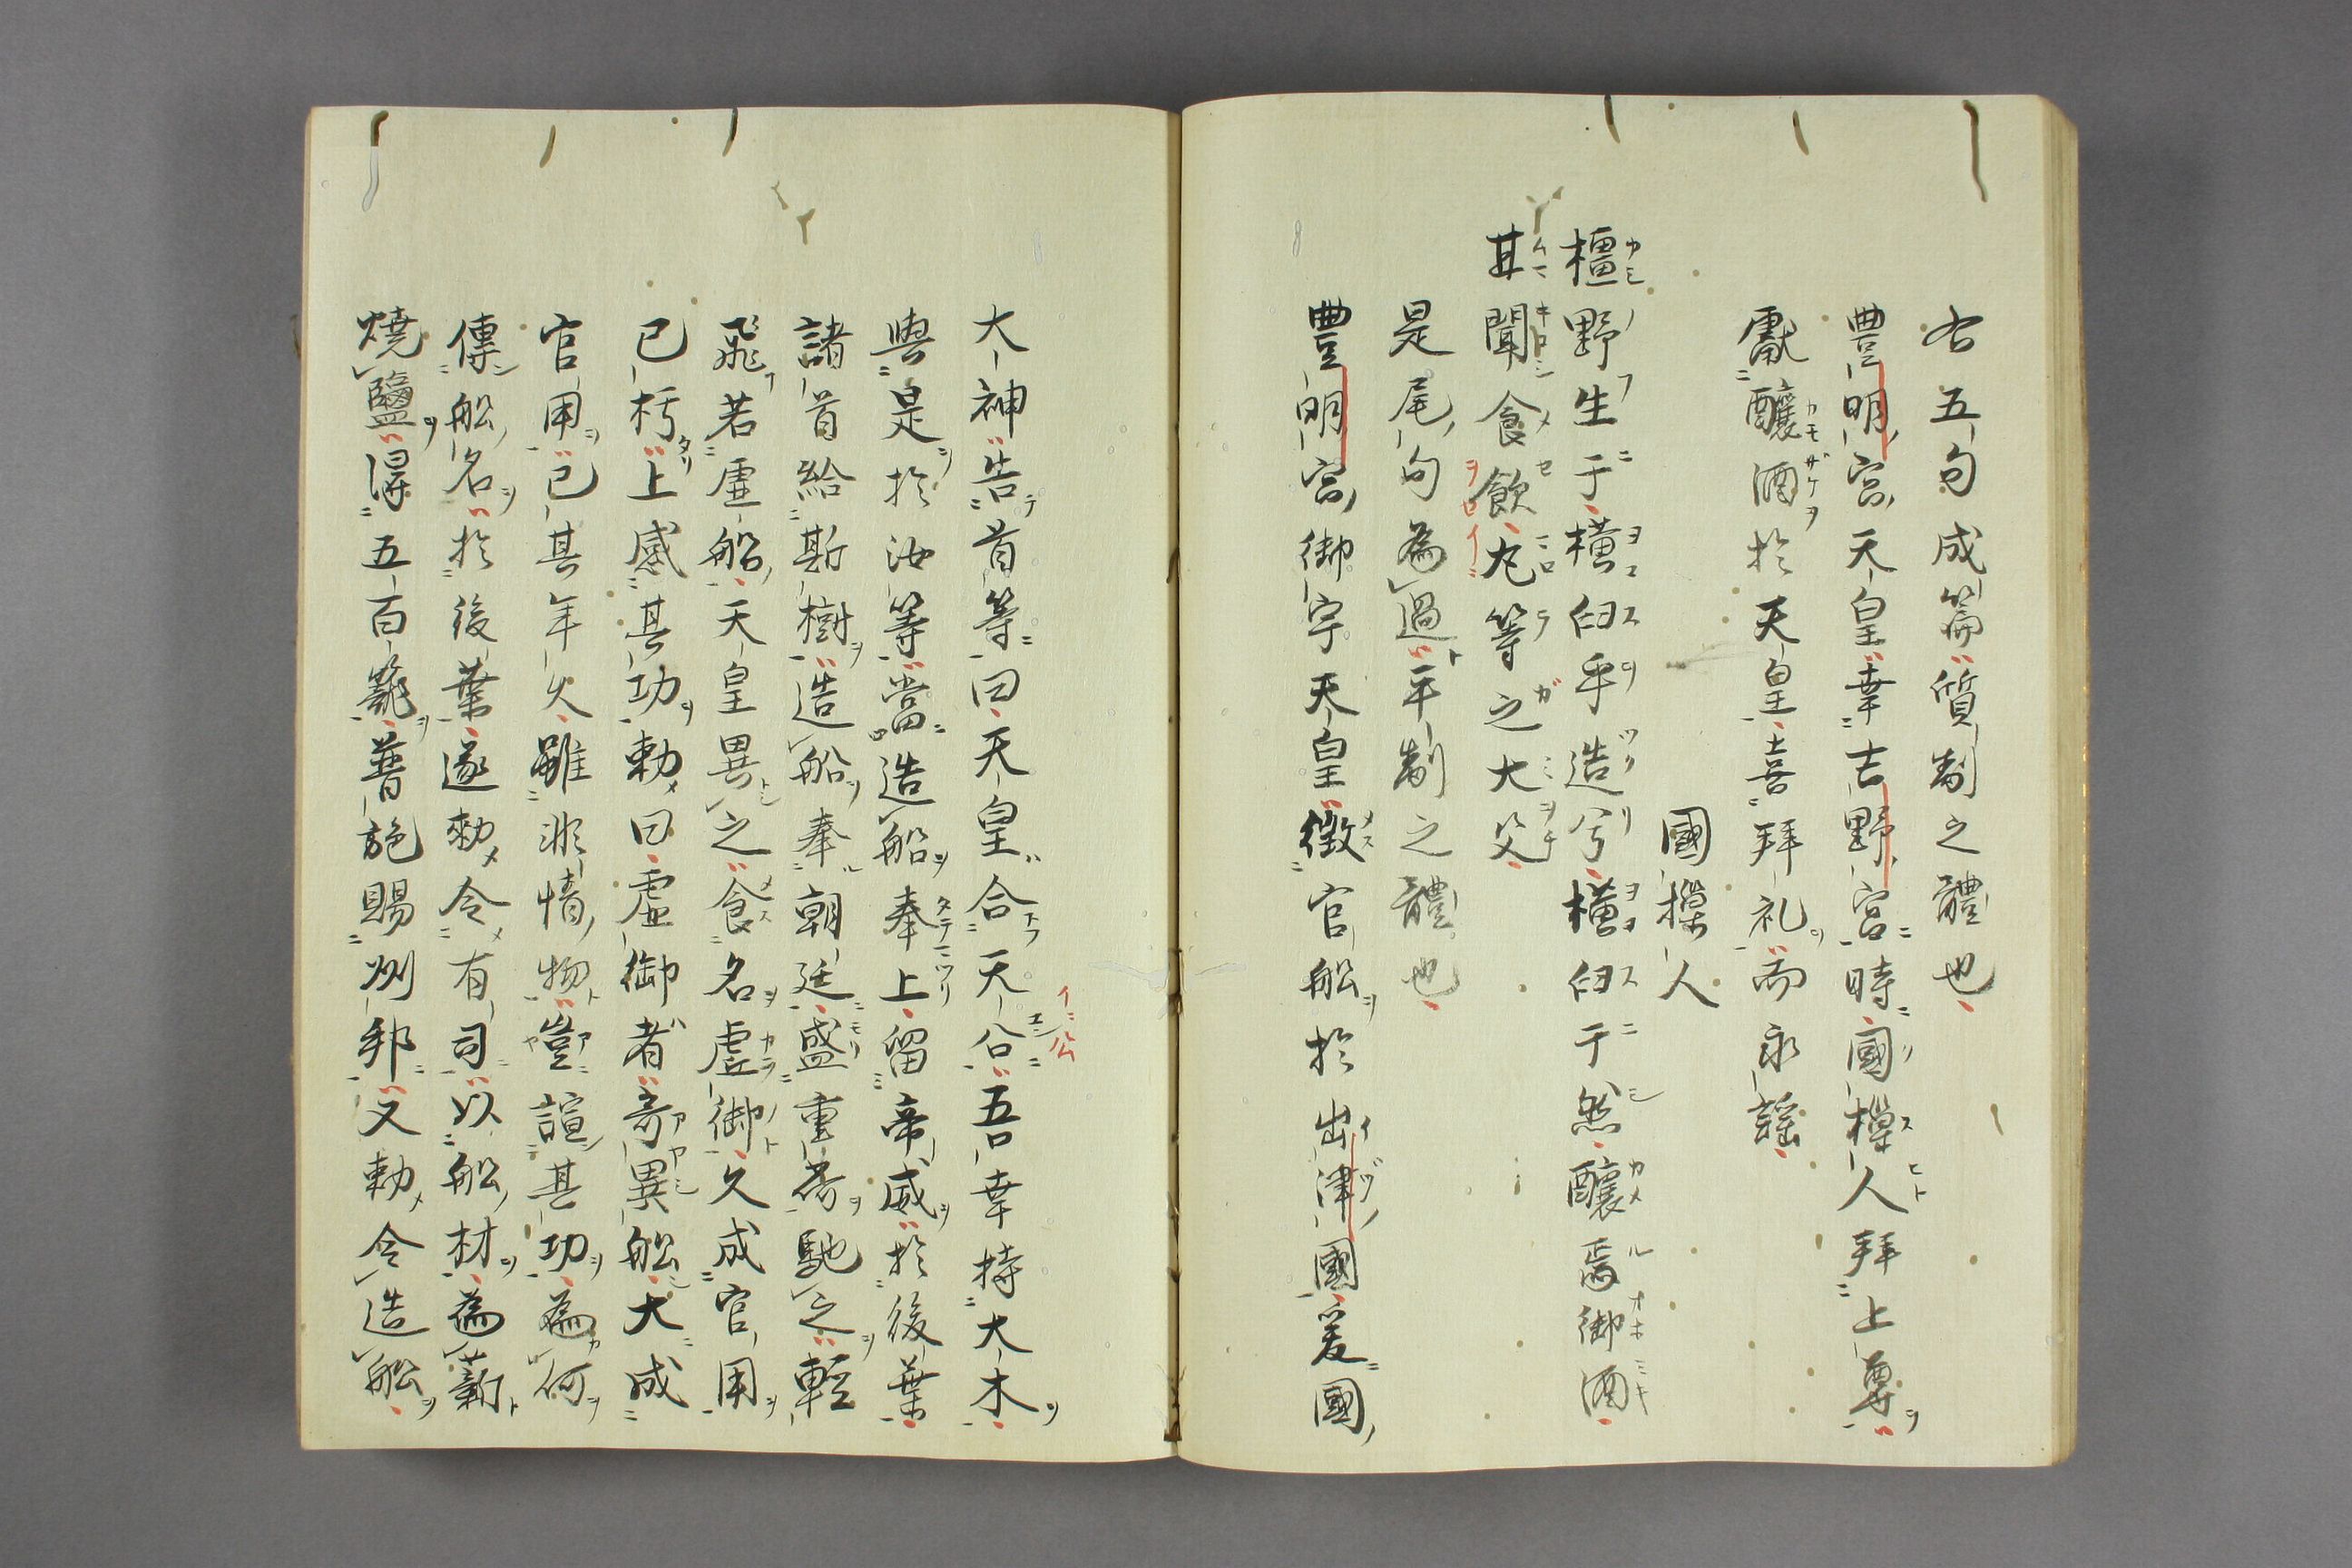 右五句成篇質制之體也
豊明宮天皇幸吉野宮時國樔人拜上尊
獻醸酒於天皇喜拜礼而永謡
國樔人
橿野生于横臼乎造兮横臼于然醸焉御酒
甘聞食飲丸等之大父
是尾句為過平制之體也
豊明宮御宇天皇徴官船於出津國爰國
大神告首等曰天皇合天公吾幸持大木
與是於汝等當造船奉上留帝威於後葉
諸首給斯樹造船奉朝廷盛重荷馳之輕
飛若虚船天皇異之食名虚御久成官用
已朽上感其功勅曰虚御者奇異船大成
官用已其年久雖非情物豈諠其功為何
傳船名於後葉遂勅令有司以船材為薪
焼鹽得五百籠普施賜州邦又勅令造船